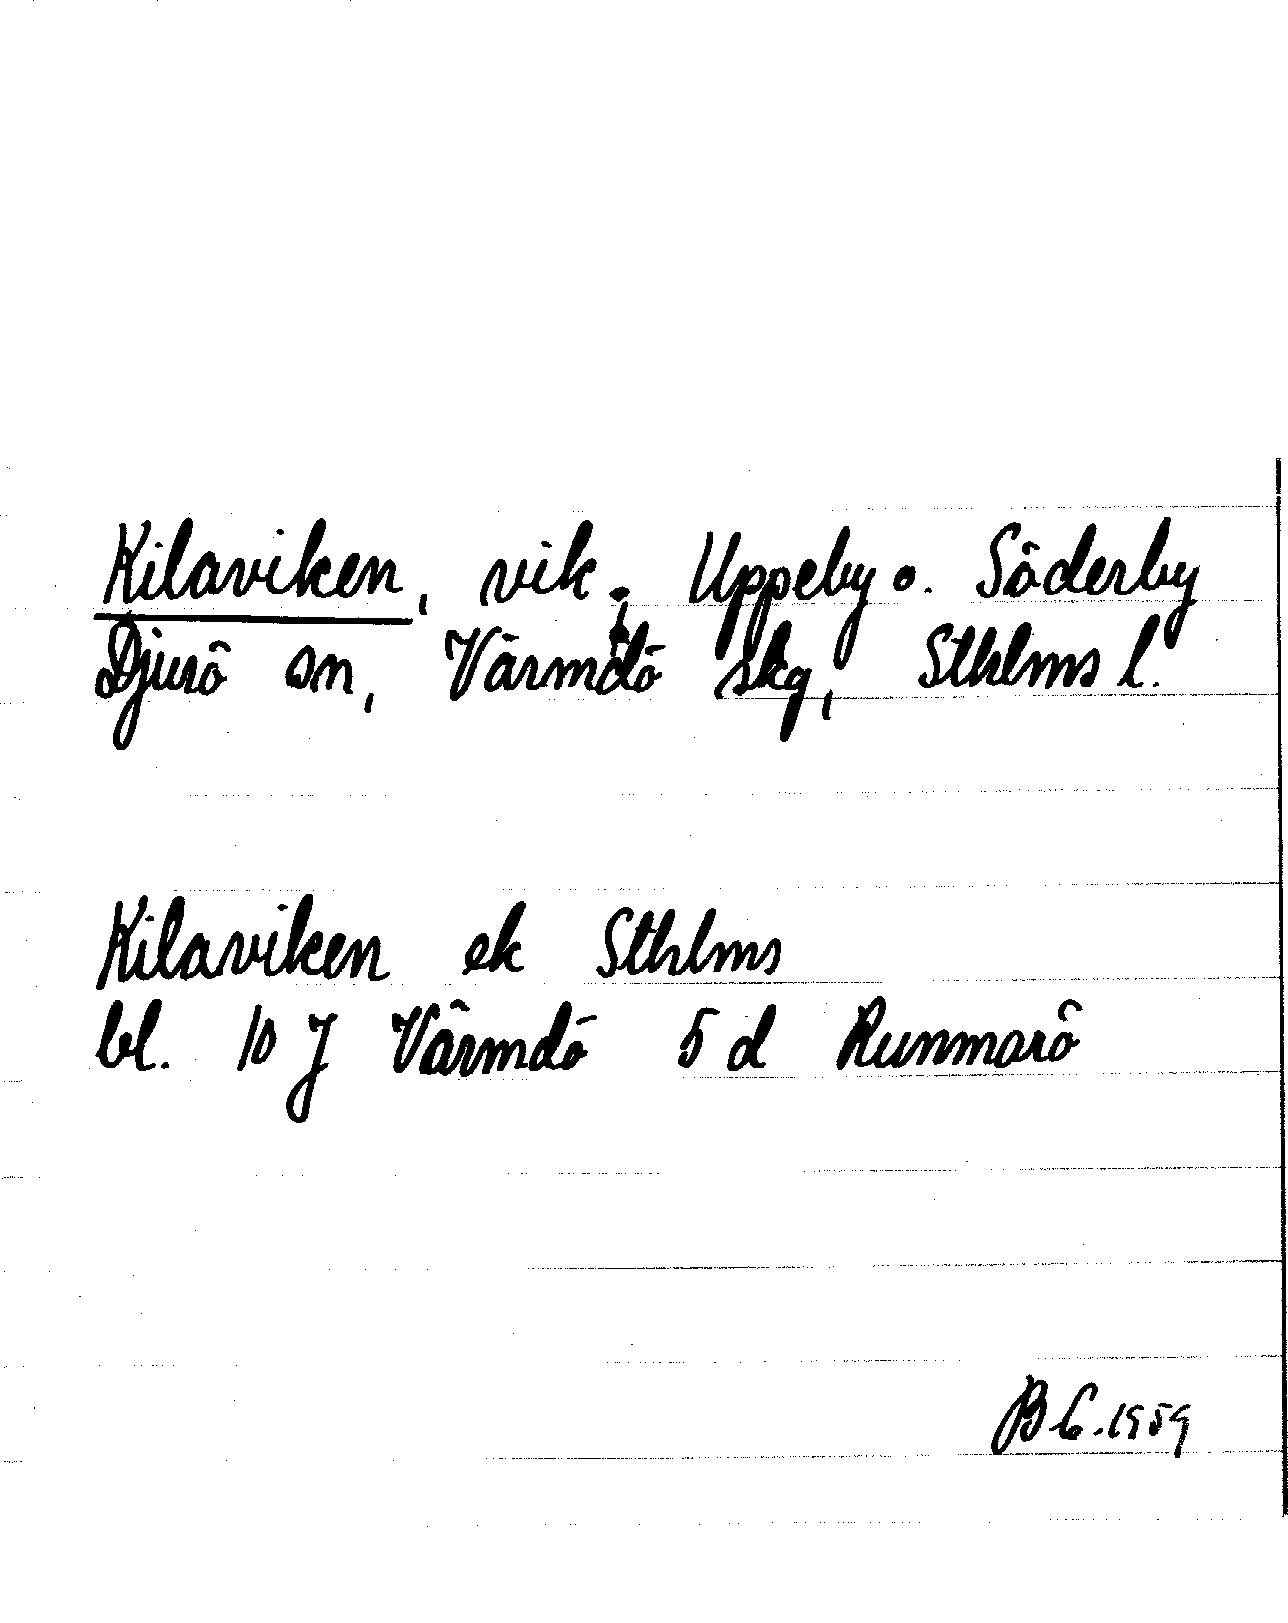 Kilaviken, vik, Uppeby o. Söderby
Djurö sn, Värmdö skg, Sthlms l.
Kilaviken ek Sthlms
bl. 10 J Värmdö 5 d Runmarö
B C. 1959